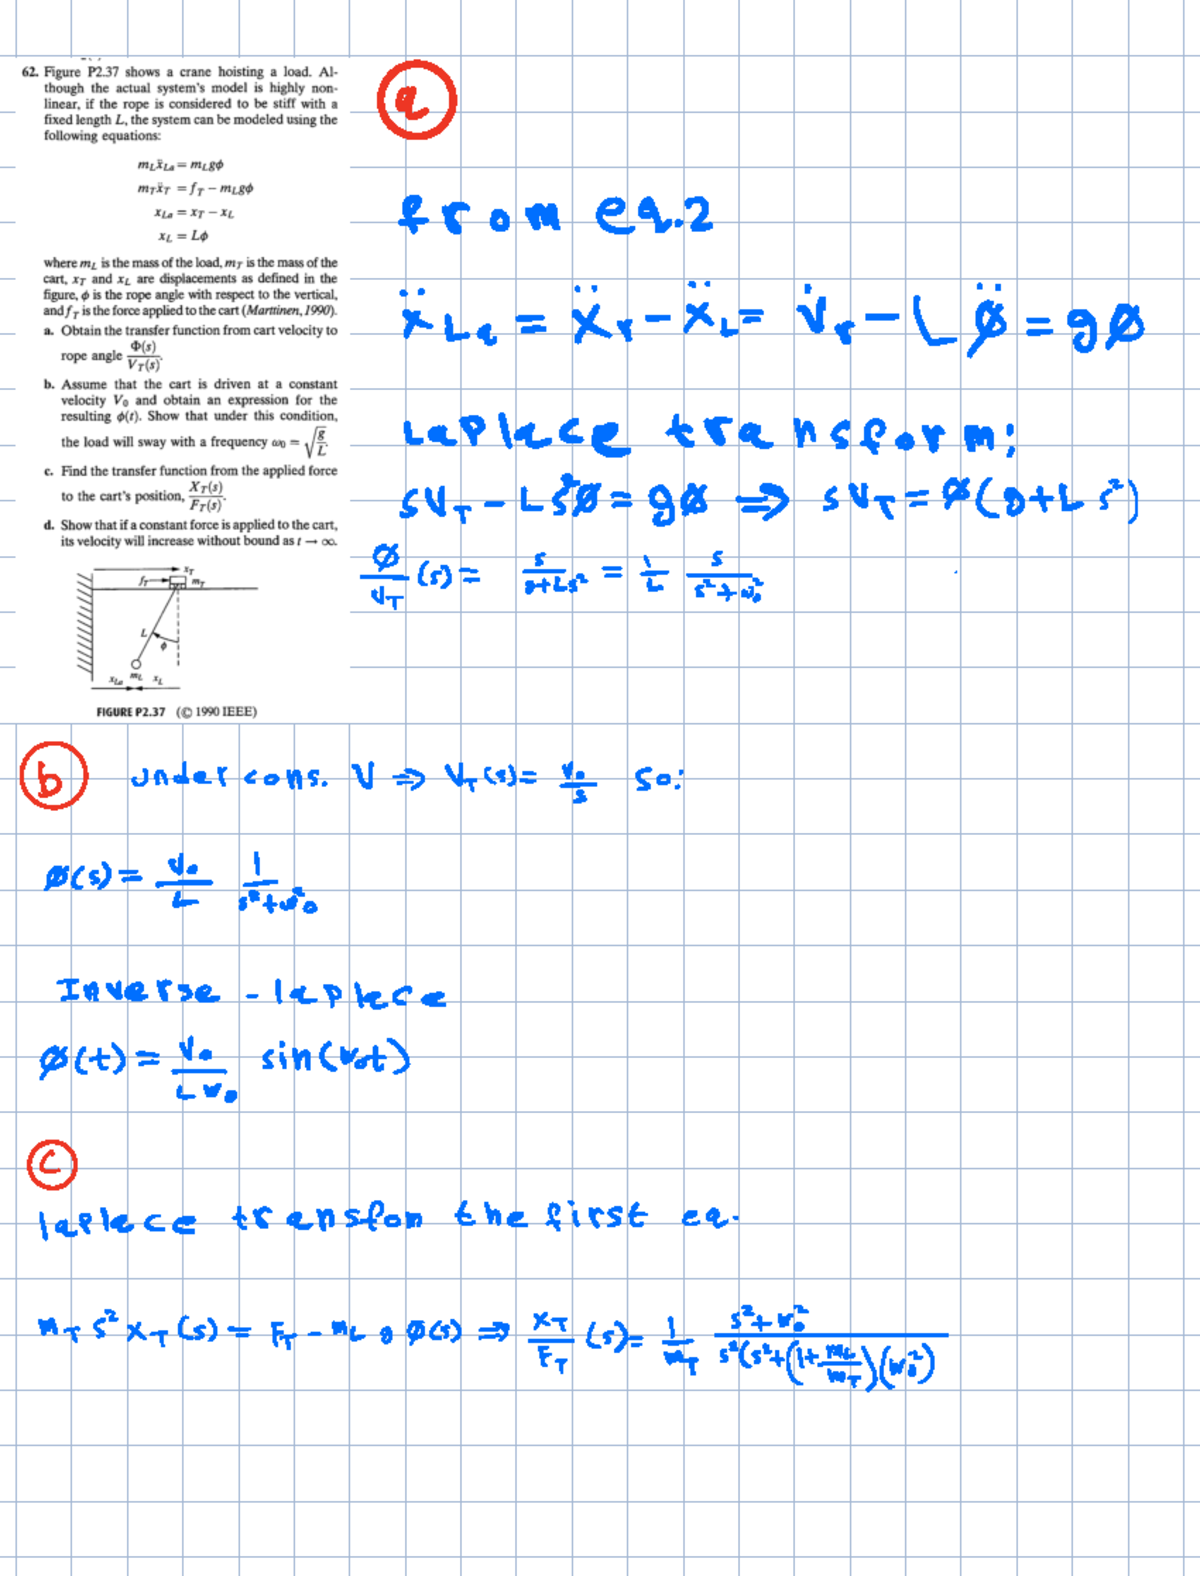 62. Figure P2.37 shows a crane hoisting a load. Al-
though the actual system's model is highly non-
linear, if the rope is considered to be stiff with a
fixed length L, the system can be modeled using the
following equations:
m_L ẍ_La = m_L gϕ
m_T ẍ_T = f_T − m_L gϕ
x_La = x_T − x_L
x_L = Lϕ
where m_L is the mass of the load, m_T is the mass of the
cart, x_T and x_L are displacements as defined in the
figure, ϕ is the rope angle with respect to the vertical,
and f_T is the force applied to the cart (Marttinen, 1990).
a. Obtain the transfer function from cart velocity to
rope angle Φ(s)/V_T(s).
b. Assume that the cart is driven at a constant
velocity V₀ and obtain an expression for the
resulting ϕ(t). Show that under this condition,
the load will sway with a frequency ω₀ = √(g/L).
c. Find the transfer function from the applied force
to the cart's position, X_T(s)/F_T(s).
d. Show that if a constant force is applied to the cart,
its velocity will increase without bound as t → ∞.
x_T
f_T m_T
L
ϕ
x_La m_L x_L
FIGURE P2.37 (© 1990 IEEE)
a
from eq.2
ẍ_La = ẍ_T − ẍ_L = v̇_T − L ϕ̈ = gϕ
Laplace transform;
sV_T − Ls²ϕ = gϕ ⇒ sV_T = ϕ(g+Ls²)
ϕ/V_T (s) = s/(g+Ls²) = 1/L s/(s²+ω₀²)
b under cons. V ⇒ V_T(s) = V₀/s so:
ϕ(s) = V₀/L 1/(s²+ω₀²)
Inverse - laplace
ϕ(t) = V₀/(Lω₀) sin(ω₀t)
c
laplace transfom the first eq.
m_T s² X_T(s) = F_T − m_L g ϕ(s) ⇒ X_T/F_T (s) = 1/m_T (s²+ω₀²)/(s²(s²+(1+m_L/m_T)(ω₀²))